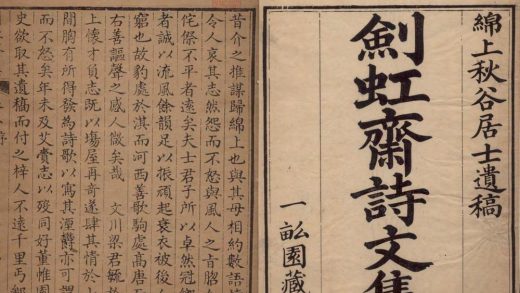 綿上秋谷居士遺稿
劍虹齋詩文集
一畝園藏
昔介之推謀歸綿上也與其母相約數語
令人哀其志然怨而不怒與風人之旨脗
侘傺不平者遠矣夫士君子所以卓然冠
者誠以流風餘韻足以振頑起衰衣被後人
窮也故豹處於淇而河西善歌駒處高唐
右善謳聲之感人微矣哉 文川梁君毓
上懷才負志既以塲屋再奇遂肆其情於
間胸有所得發為詩歌以寫其湮鬱亦可謂
而不怒矣年未及艾賫志以殁同好董帷園
史欲取其遺稿而付之梓人不遠千里丐